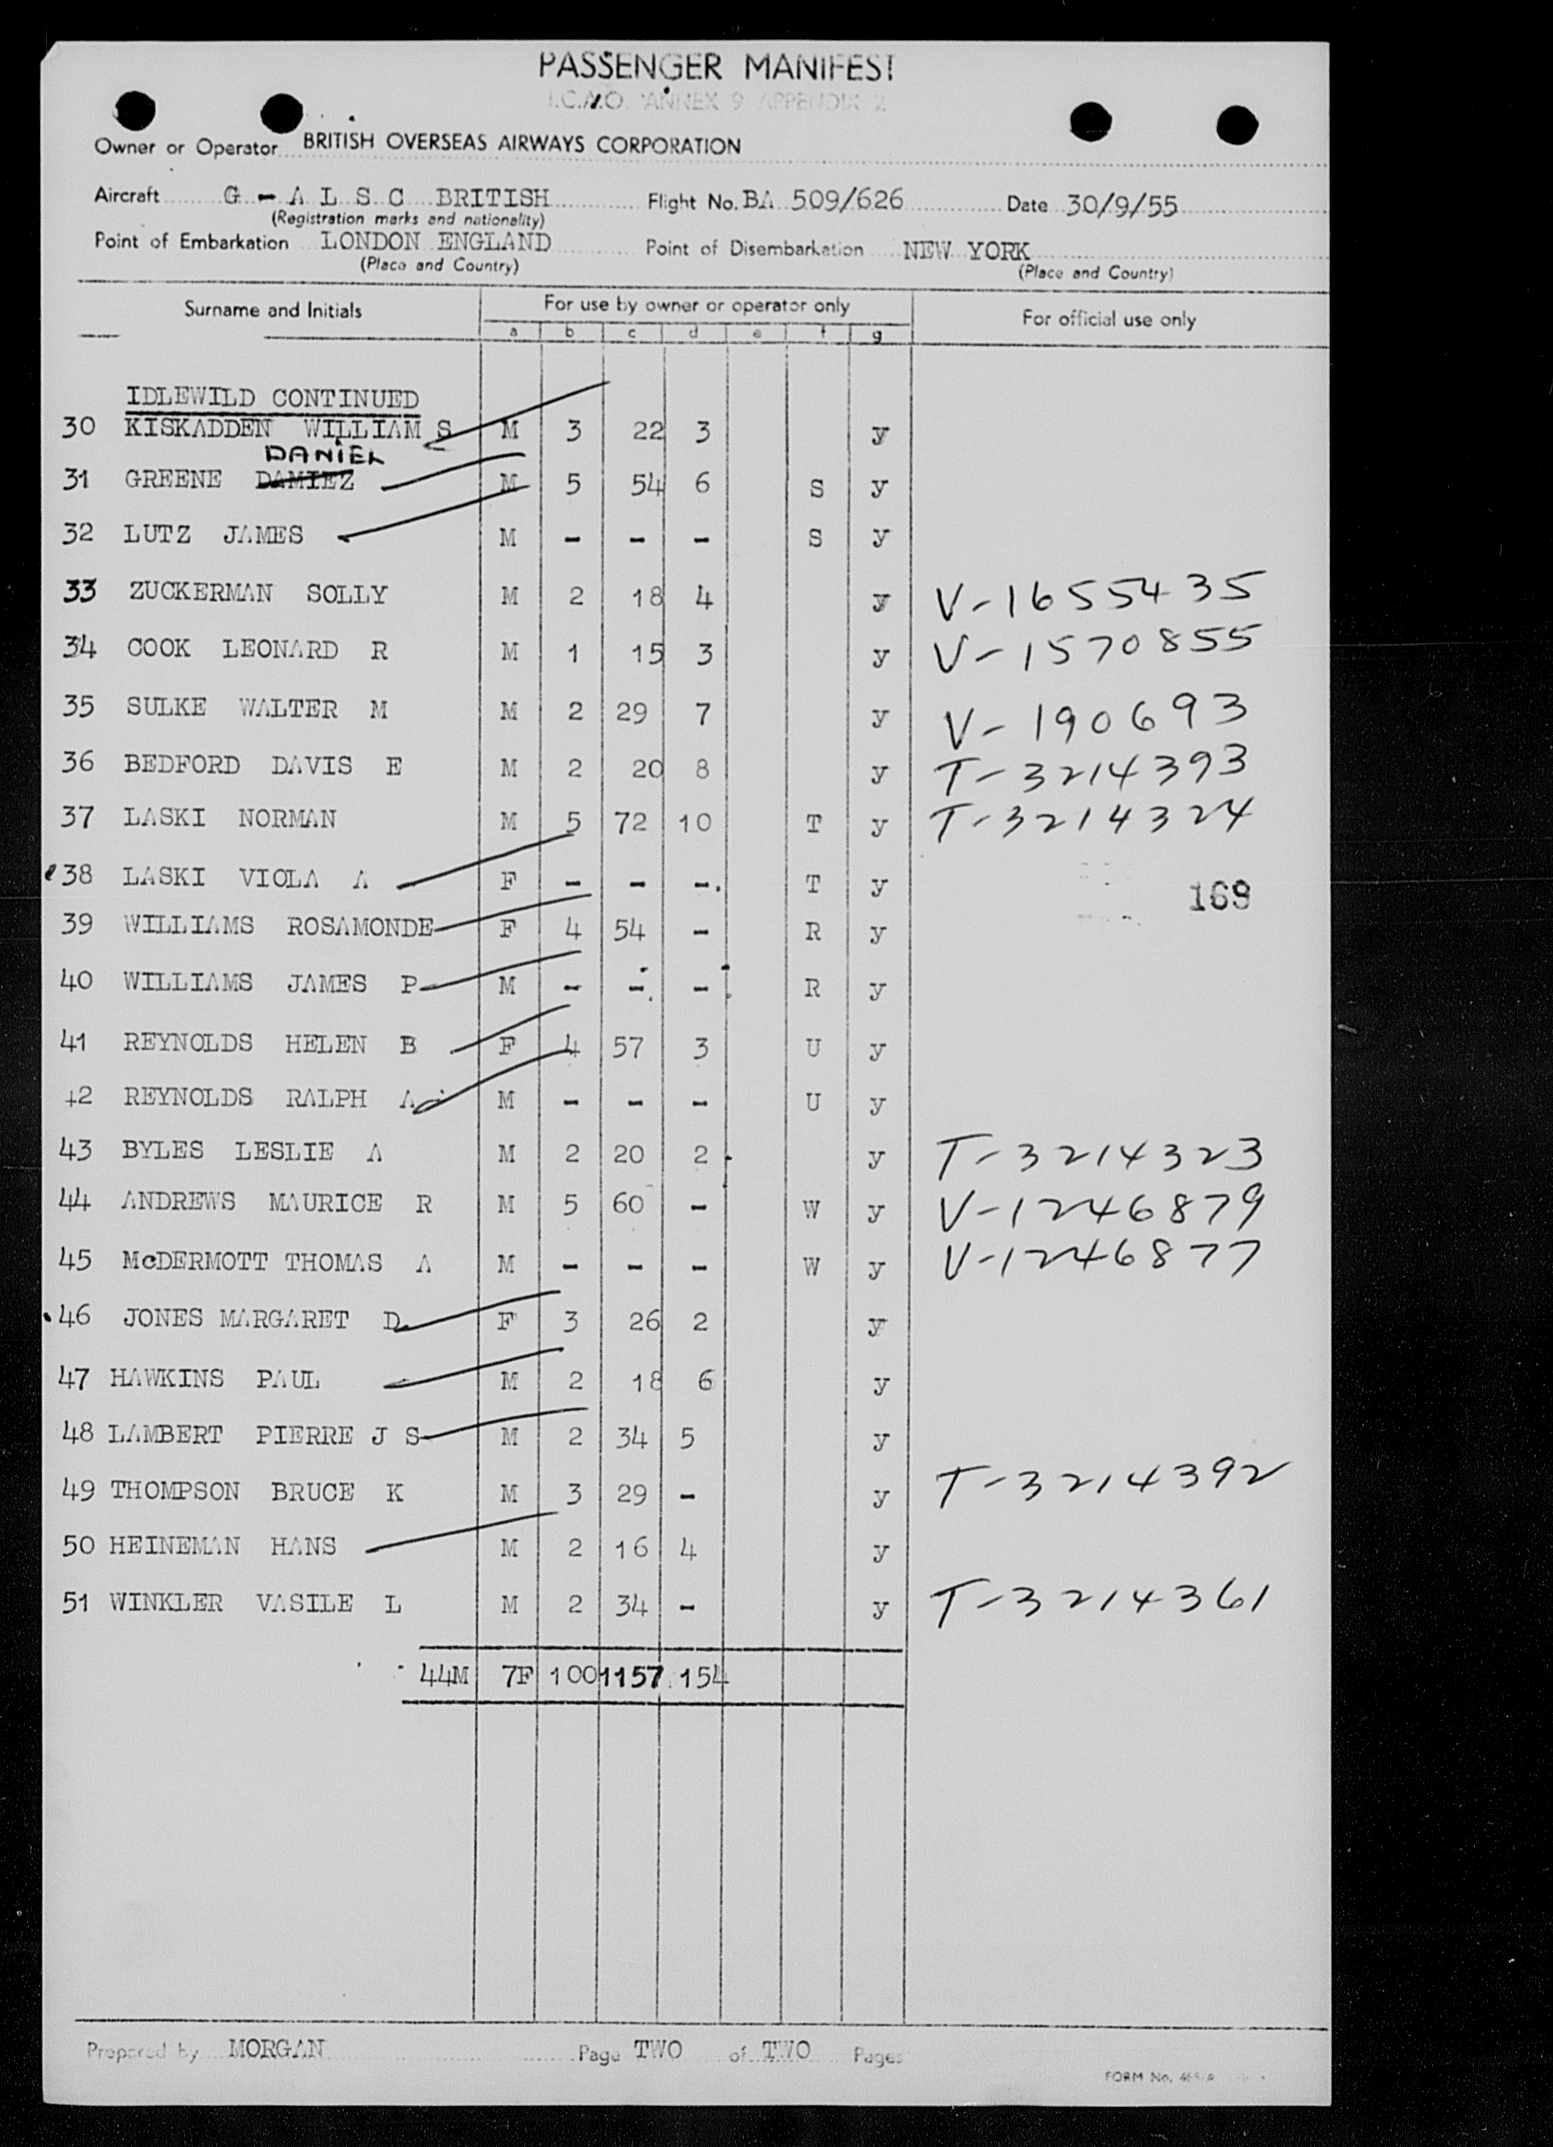 PASSENGER MANIFEST
I.C.A.O. ANNEX 9 APPENDIX 2
Owner or Operator BRITISH OVERSEAS AIRWAYS CORPORATION
Aircraft G - A L S C BRITISH Flight No. BA 509/626 Date 30/9/55
(Registration marks and nationality)
Point of Embarkation LONDON ENGLAND Point of Disembarkation NEW YORK
(Place and Country) (Place and Country)
Surname and Initials For use by owner or operator only For official use only
a b c d e f g
IDLEWILD CONTINUED
30 KISKADDEN WILLIAM S M 3 22 3 y
DANIEL
31 GREENE DAMIEZ M 5 54 6 S y
32 LUTZ JAMES M - - - S y
33 ZUCKERMAN SOLLY M 2 18 4 y V-1655435
34 COOK LEONARD R M 1 15 3 y V-1570855
35 SULKE WALTER M M 2 29 7 y V-190693
36 BEDFORD DAVIS E M 2 20 8 y T-3214393
37 LASKI NORMAN M 5 72 10 T y T-3214324
38 LASKI VIOLA A F - - - T y
169
39 WILLIAMS ROSAMONDE F 4 54 - R y
40 WILLIAMS JAMES P M - - - R y
41 REYNOLDS HELEN B F 4 57 3 U y
42 REYNOLDS RALPH A M - - - U y
43 BYLES LESLIE A M 2 20 2 y T-3214323
44 ANDREWS MAURICE R M 5 60 - W y V-1246879
45 McDERMOTT THOMAS A M - - - W y V-1246877
46 JONES MARGARET D F 3 26 2 y
47 HAWKINS PAUL M 2 18 6 y
48 LAMBERT PIERRE J S M 2 34 5 y
49 THOMPSON BRUCE K M 3 29 - y T-3214392
50 HEINEMAN HANS M 2 16 4 y
51 WINKLER VASILE L M 2 34 - y T-3214361
44M 7F 100 1157 154
Prepared by MORGAN Page TWO of TWO Pages
FORM No.